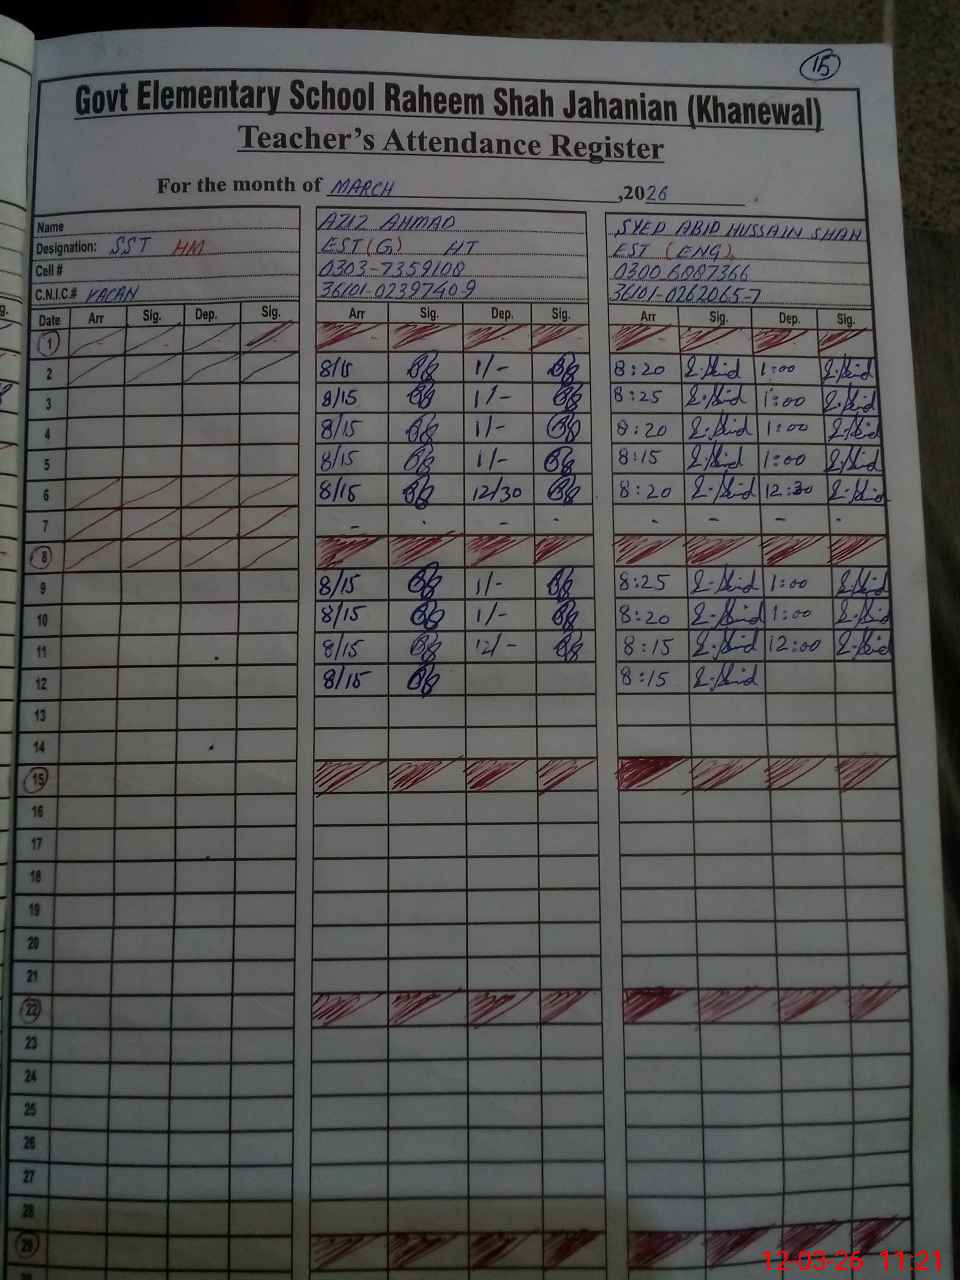 15
Govt Elementary School Raheem Shah Jahanian (Khanewal)
Teacher's Attendance Register
For the month of MARCH ,2026 .
Name AZIZ AHMAD SYED ABID HUSSAIN SHAH
Designation: SST HM EST (G) HT EST (ENG)
Cell # 0303-7359108 0300 6887366
C.N.I.C.# VACAN 36101-0239740-9 36101-0262065-7
Date Arr Sig. Dep. Sig. Arr Sig. Dep. Sig. Arr Sig. Dep. Sig.
1
2 8/15 1/- 8:20 1:00
3 8/15 1/- 8:25 1:00
4 8/15 1/- 8:20 1:00
5 8/15 1/- 8:15 1:00
6 8/15 12/30 8:20 12:30
7 - - - -
8
9 8/15 1/- 8:25 1:00
10 8/15 1/- 8:20 1:00
11 8/15 12/- 8:15 12:00
12 8/15 8:15
13
14
15
16
17
18
19
20
21
22
23
24
25
26
27
28
29
12-03-26 11:21